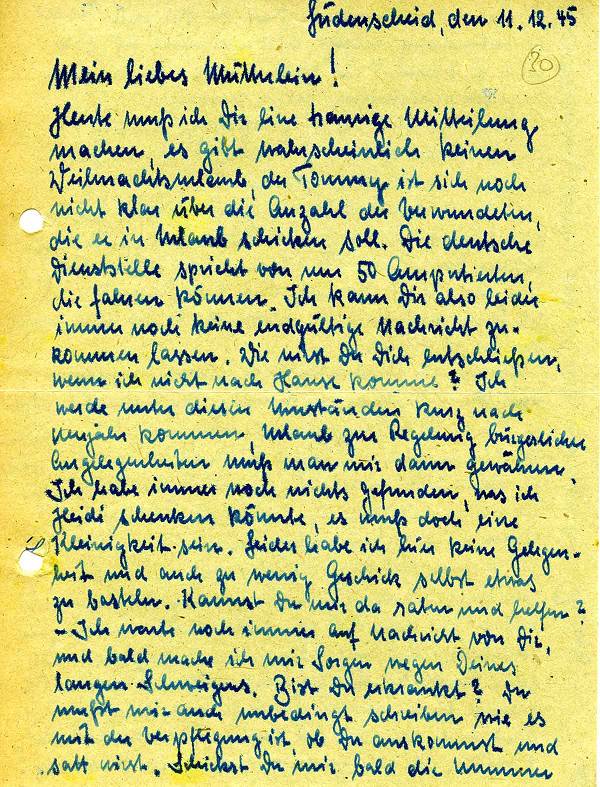 Lüdenscheid, den 11.12.45
20
Mein liebes Mütterlein!
Heute muß ich Dir eine traurige Mitteilung
machen, es gibt wahrscheinlich keinen
Weihnachtsurlaub, der Tommy ist sich noch
nicht klar über die Anzahl der Verwundeten,
die er in Urlaub schicken soll. Die deutsche
Dienststelle spricht von nur 50 Amputierten,
die fahren können. Ich kann Dir also leider
immer noch keine endgültige Nachricht zu-
kommen lassen. Wie wirst Du Dich entschließen,
wenn ich nicht nach Hause komme? Ich
werde unter diesen Umständen kurz nach
Neujahr kommen, Urlaub zur Regelung bürgerlicher
Angelegenheiten muß man mir dann gewähren.
Ich habe immer noch nichts gefunden, was ich
Heidi schenken könnte, es muß doch eine
Kleinigkeit sein. Leider habe ich hier keine Gelegen-
heit und auch zu wenig Geschick selbst etwas
zu basteln. Kannst Du mir da raten und helfen?
- Ich warte noch immer auf Nachricht von Dir,
und bald mache ich mir Sorgen wegen Deines
langen Schweigens. Bist Du erkrankt? Du
mußt mir auch unbedingt schreiben wie es
mit der Verpflegung ist, ob Du auskommst und
satt wirst. Schickst Du mir bald die Nummer